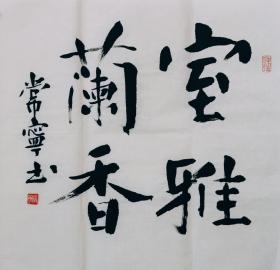 室雅
蘭香
常寧书